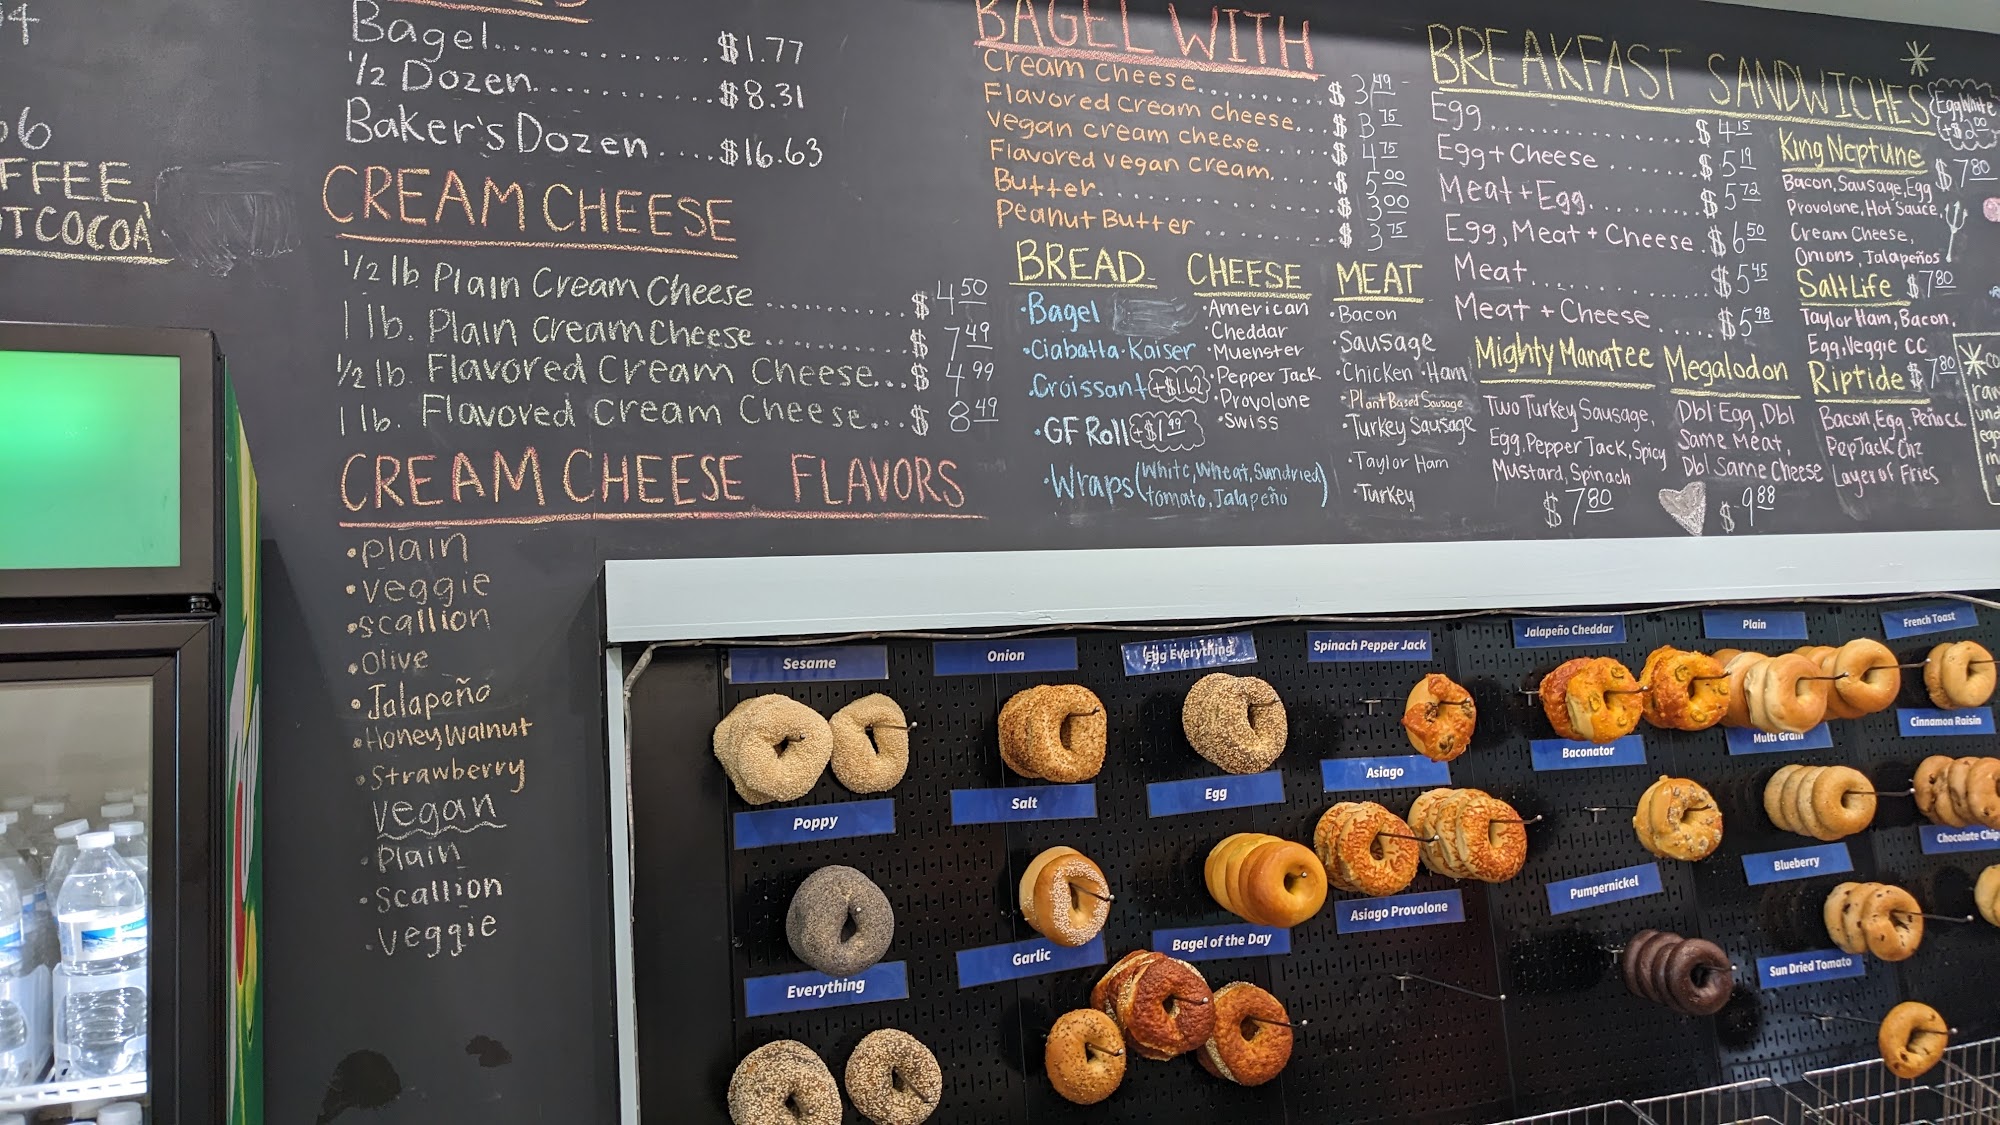 Bagel.......... $1.77
1/2 Dozen.......... $8.31
Baker's Dozen.... $16.63
CREAM CHEESE
1/2 lb Plain Cream Cheese....... $4.50
1 lb. Plain Cream Cheese.......... $7.49
1/2 lb. Flavored Cream Cheese... $4.99
1 lb. Flavored Cream Cheese... $8.49
CREAM CHEESE FLAVORS
•plain
•veggie
•scallion
•Olive
•Jalapeño
•Honey Walnut
•Strawberry
Vegan
•Plain
•Scallion
•Veggie
BAGEL WITH
Cream Cheese.......... $3.49
Flavored Cream Cheese... $3.75
Vegan Cream Cheese...... $4.75
Flavored Vegan Cream.... $5.00
Butter.................. $3.00
Peanut Butter.......... $3.75
BREAD
•Bagel
•Ciabatta•Kaiser
•Croissant +$1.62
•GF Roll +$1.99
•Wraps (White, Wheat, Sundried
tomato, Jalapeño)
CHEESE
•American
•Cheddar
•Muenster
•Pepper Jack
•Provolone
•Swiss
MEAT
•Bacon
•Sausage
•Chicken •Ham
•Plant Based Sausage
•Turkey Sausage
•Taylor Ham
•Turkey
BREAKFAST SANDWICHES
Egg White
+$2.00
Egg.................. $4.15
Egg + Cheese.......... $5.19
Meat + Egg.......... $5.72
Egg, Meat + Cheese. $6.50
Meat............... $5.45
Meat + Cheese..... $5.98
Mighty Manatee
Two Turkey Sausage,
Egg, Pepper Jack, Spicy
Mustard, Spinach
$7.80
Megalodon
Dbl Egg, Dbl
Same Meat,
Dbl Same Cheese
$9.88
King Neptune $7.80
Bacon, Sausage, Egg
Provolone, Hot Sauce,
Cream Cheese,
Onions, Jalapeños
Salt Life $7.80
Taylor Ham, Bacon,
Egg, Veggie CC
Riptide $7.80
Bacon, Egg, Peño CC
PepJack Chz
Layer of Fries
FFEE,
OT COCOA
Sesame
Onion
Egg Everything
Spinach Pepper Jack
Jalapeño Cheddar
Plain
French Toast
Poppy
Salt
Egg
Asiago
Baconator
Multi Grain
Cinnamon Raisin
Everything
Garlic
Bagel of the Day
Asiago Provolone
Pumpernickel
Blueberry
Chocolate Chip
Sun Dried Tomato